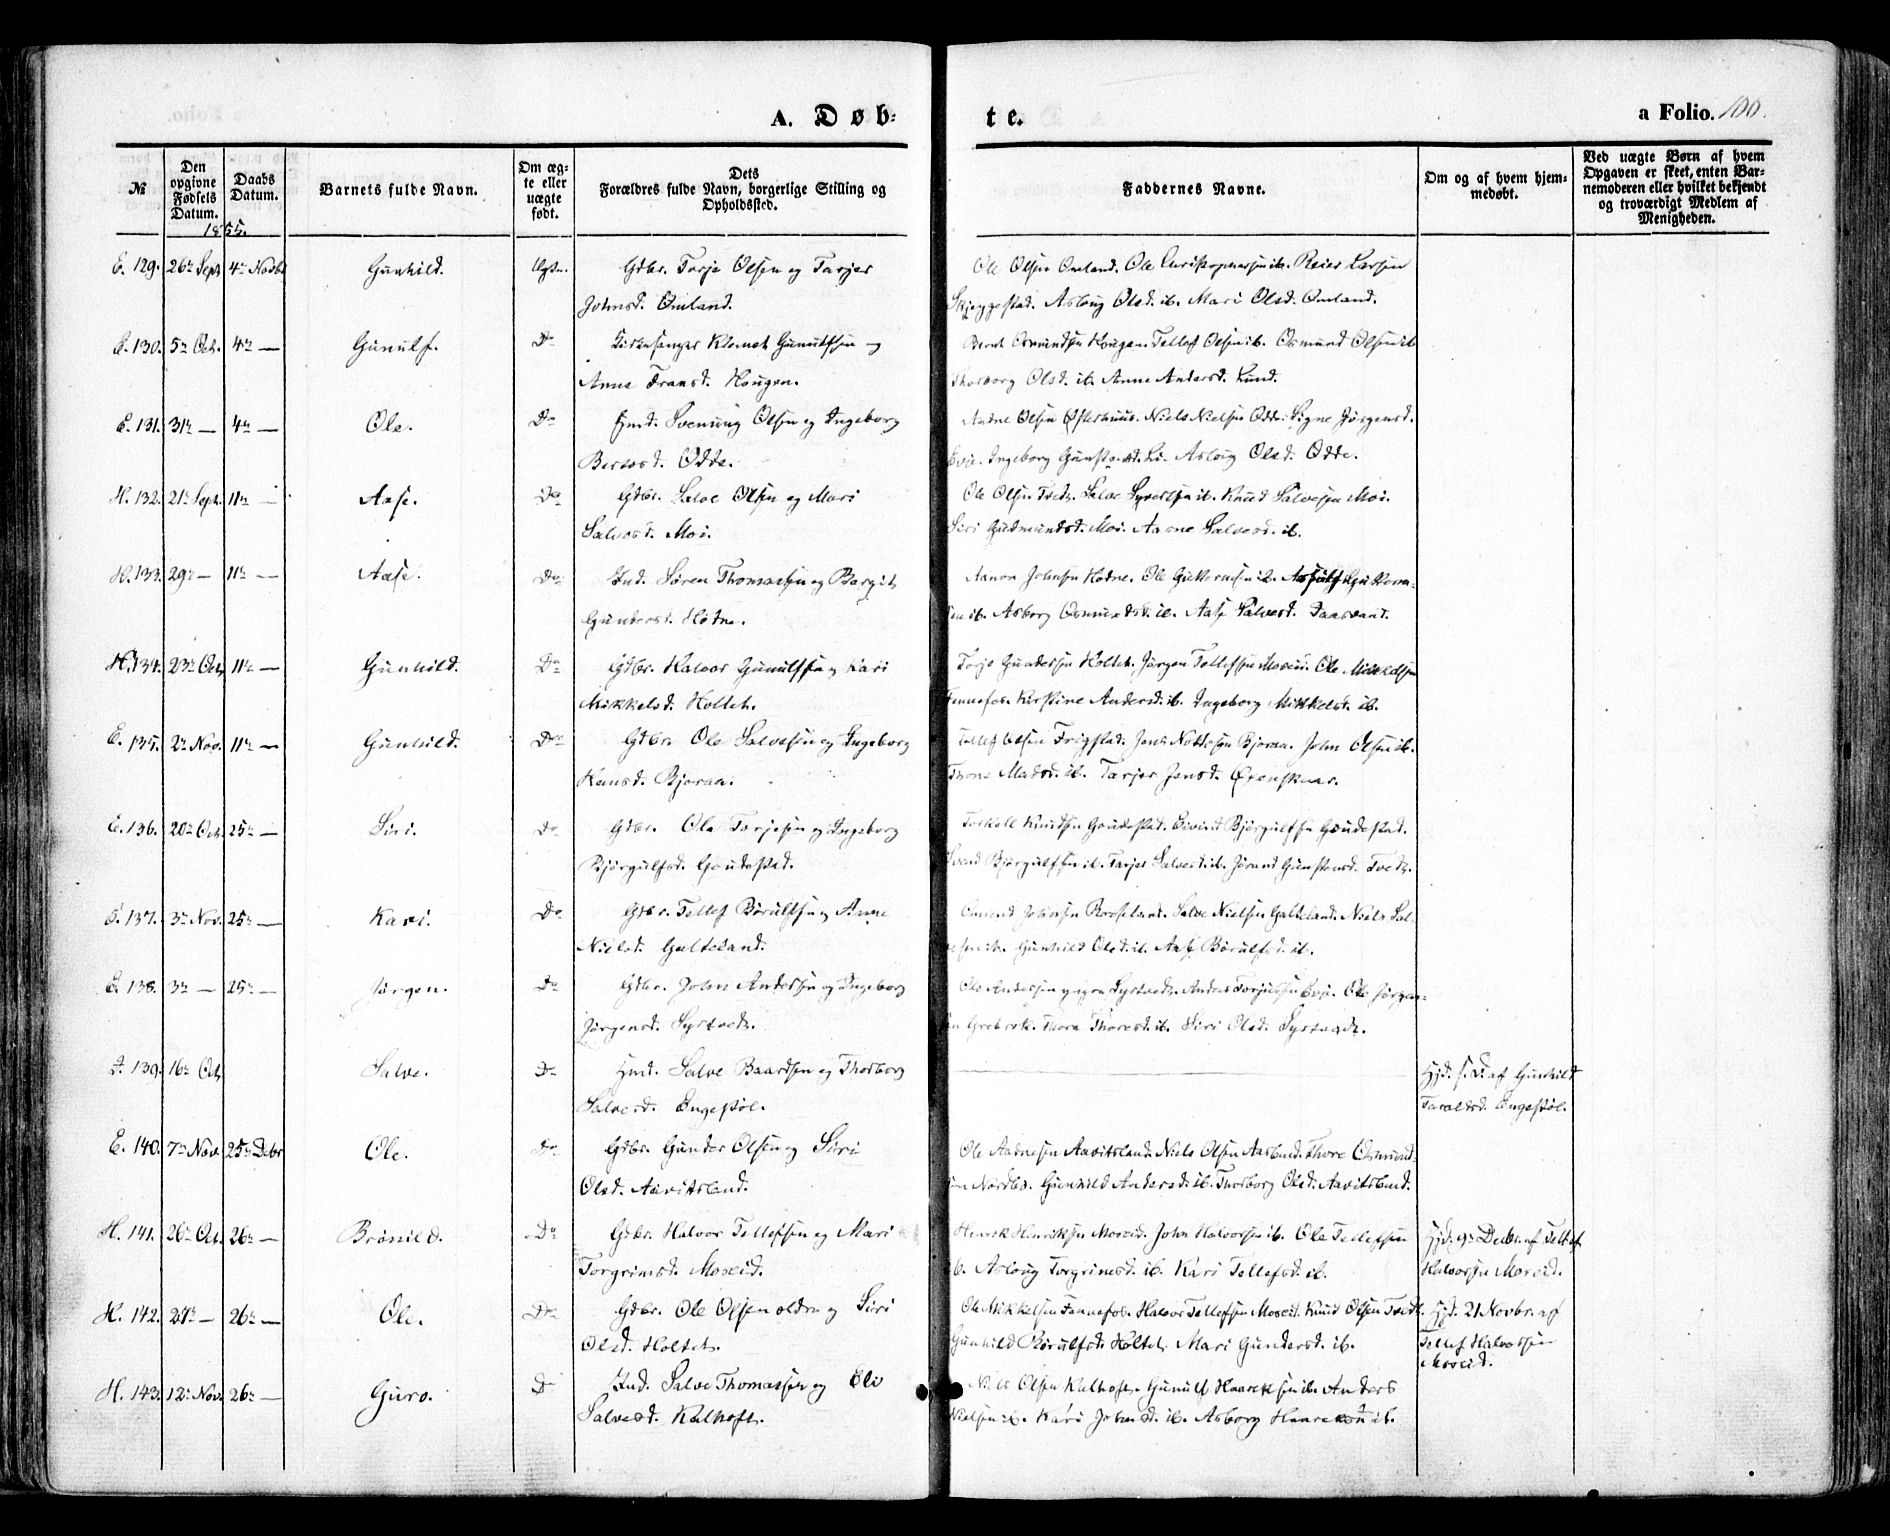 A. Døb-
te.
a Folio. 100.
№
Den opgivne Fødsels Datum.
Daabs Datum.
Barnets fulde Navn.
Om ægte eller uægte født.
Dets Forældres fulde Navn, borgerlige Stilling og Opholdssted.
Faddernes Navne.
Om og af hvem hjemmedøbt.
Ved uægte Børn af hvem Opgaven er skeet, enten Barnemoderen eller hvilket bekjendt og troværdigt Medlem af Menigheden.
1855.
E. 129. 26 Sept. 4 Novbr Gunhild. Ægte. Gdbr. Torje Olsen og Tarjer
Johnsd. Omland.
Ole Olsen Omland. Ole ib. Reier Larsen
Skjeggestad. Asloug Olsd. ib. Mari Olsd. Omland.
E. 130. 5 Oct. 4 — Gunulf. Do Kirkesanger Klemet Gunulfsen og
Anne Fransd. Hougen.
Bernt Osmundsen Hougen. Tellef Olsen ib. Osmund Olsen ib
Thorborg Olsd. ib. Anne Andersd. Lund.
E. 131. 31 — 4 — Ole. Do Hmd. Svenung Olsen og Ingeborg
Odde.
Olsen Østerhuus. Niels Nielsen Odde. Signe Jørgensd.
Evje. Ingeborg Asloug Olsd. Odde.
H. 132. 21 Sept. 11 — Aase. Do Gdbr. Salve Olsen og Mari
Salvesd. Moi.
Ole Olsen Tvedt. Salve Syvertsen ib. Knud Salvesen Moi.
Siri Gudmundsd. Moi. Aasne Salvesd. ib.
H. 133. 29 — 11 — Aase. Do Ind. Søren Thomassen og Bargit
Gundersd. Hodne.
Aanon Johnsen Hodne. Ole Guttormsen ib. Asjulf Guttorm-
sen ib. Asborg Osmundsd. ib. Aase Salvesd.
H. 134. 23 Oct. 11 — Gunhild. Do Gdbr. Halvor Gunulfsen og Kari
Mikkelsd. Holtet.
Torje Gundersen Holtet. Jørgen Tellefsen Moseid. Ole Mikkelsen
Fennefos. Kirstine Andersd. ib. Ingeborg Mikkelsd. ib.
E. 135. 2 Nov. 11 — Gunhild. Do Gdbr. Ole Salvesen og Ingeborg
Bjoraa.
Tellef Olsen Frigstad. Jens Bjoraa. John Olsen ib.
Thone Madsd. ib. Tarjer Jensd.
E. 136. 20 Oct. 25 — Siri. Do Gdbr. Ole Torjesen og Ingeborg
Bjørgulfsd. Goudestad.
Torkell Knudsen Goudestad. Eivind Bjørgulfsen Goudestad.
Svend Bjørgulfsen ib. Tarjer Salvesd. ib. Jorand Gunstensd. Tvedt.
E. 137. 3 Nov. 25 — Kari. Do Gdbr. Tellef Børulfsen og Anne
Nielsd. Galteland.
Omund Johnsen Rosseland. Salve Nielsen Galteland. Niels Sal-
vesen ib. Gunhild Olsd. ib. Aase Børulfsd. ib.
E. 138. 3 — 25 — Jørgen. Do Gdbr. John Andersen og Ingeborg
Jørgensd. Syrtvedt.
Ole Andersen yngre Syrtvedt. Anders Torjussen Evje. Ole Jørgen-
sen Thore Thoresd. ib. Siri Olsd. Syrtvedt.
E. 139. 16 Oct. Salve. Do Hmd. Salve Baardsen og Thorborg
Salvesd. Engestøl.
Hjd. s. D. af Gunhild
Taraldsd. Engestøl.
E. 140. 7 Nov. 25 Debr Ole. Do Gdbr. Gunder Olsen og Siri
Olsd. Aavitsland.
Ole Aadnesen Aavitsland. Niels Olsen Thore Osmund-
sen Gunhild Andersd. ib. Thorborg Olsd. Aavitsland.
H. 141. 26 Oct. 26 — Brønild. Do Gdbr. Halvor Tellefsen og Mari
Torgrimsd. Moseid.
Henrik Henriksen Moseid. John Halvorsen ib. Ole Tellefsen
ib. Asloug Torgrimsd. ib. Kari Tellefsd. ib.
Hjd. 9 Debr. af Tellef
Halvorsen Moseid.
H. 142. 27 — 26 — Ole. Do Gdbr. Ole Olsen ældre og Siri
Olsd. Holtet.
Ole Mikkelsen Fennefos. Halvor Tellefsen Moseid. Knud Olsen Tvedt.
Gunhild Børulfsd. Holtet. Mari Gundersd. ib.
Hjd. 21 Novbr. af
Tellef Halvorsen
Moseid.
H. 143. 12 Nov. 26 — Guro. Do Ind. Salve Thomassen og Eli
Salvesd. Kalhoft.
Nils Olsen Kalhoft. Gunulf Haareksen ib. Anders
Nielsen ib. Kari Johnsd. ib. Asborg Haareksd. ib.